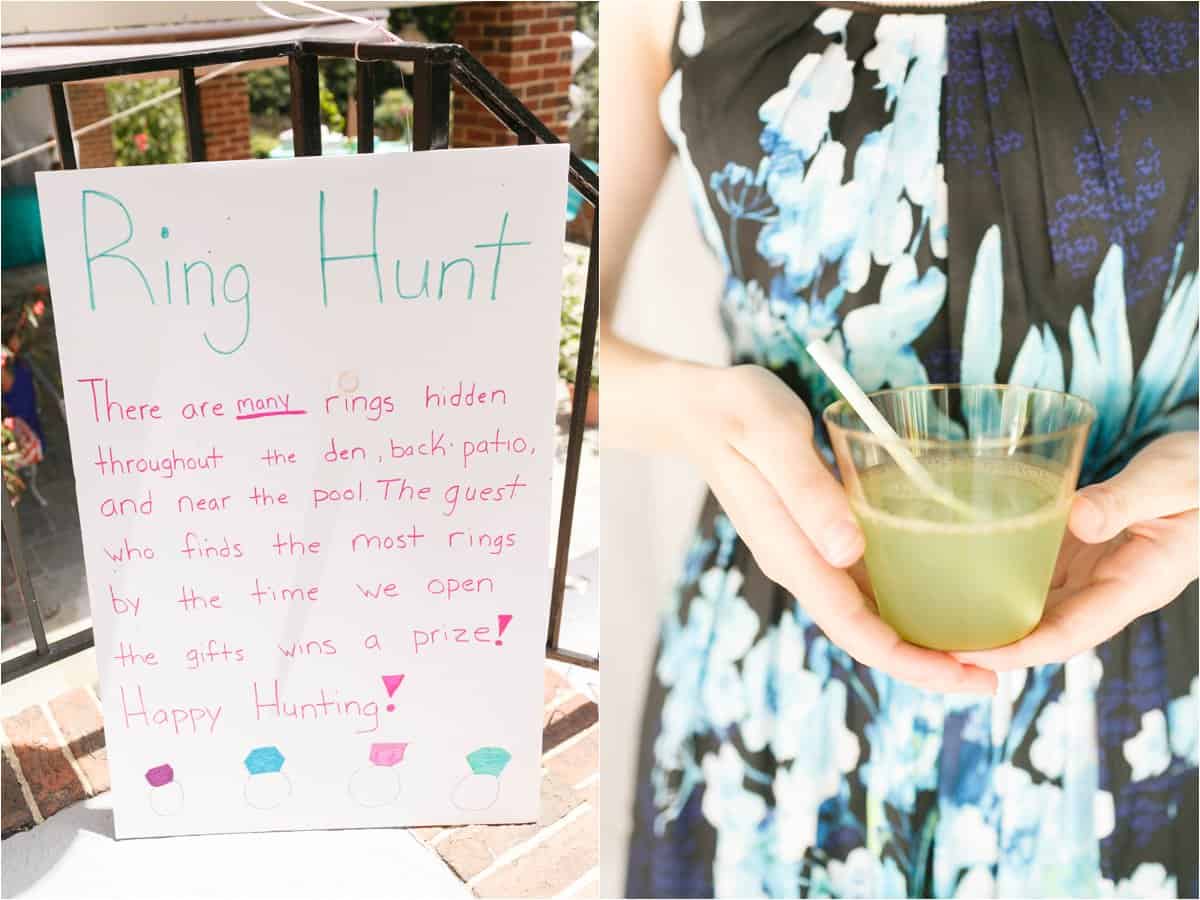 Ring Hunt
There are many rings hidden
throughout the den, back patio,
and near the pool. The guest
who finds the most rings
by the time we open
the gifts wins a prize!
Happy Hunting!